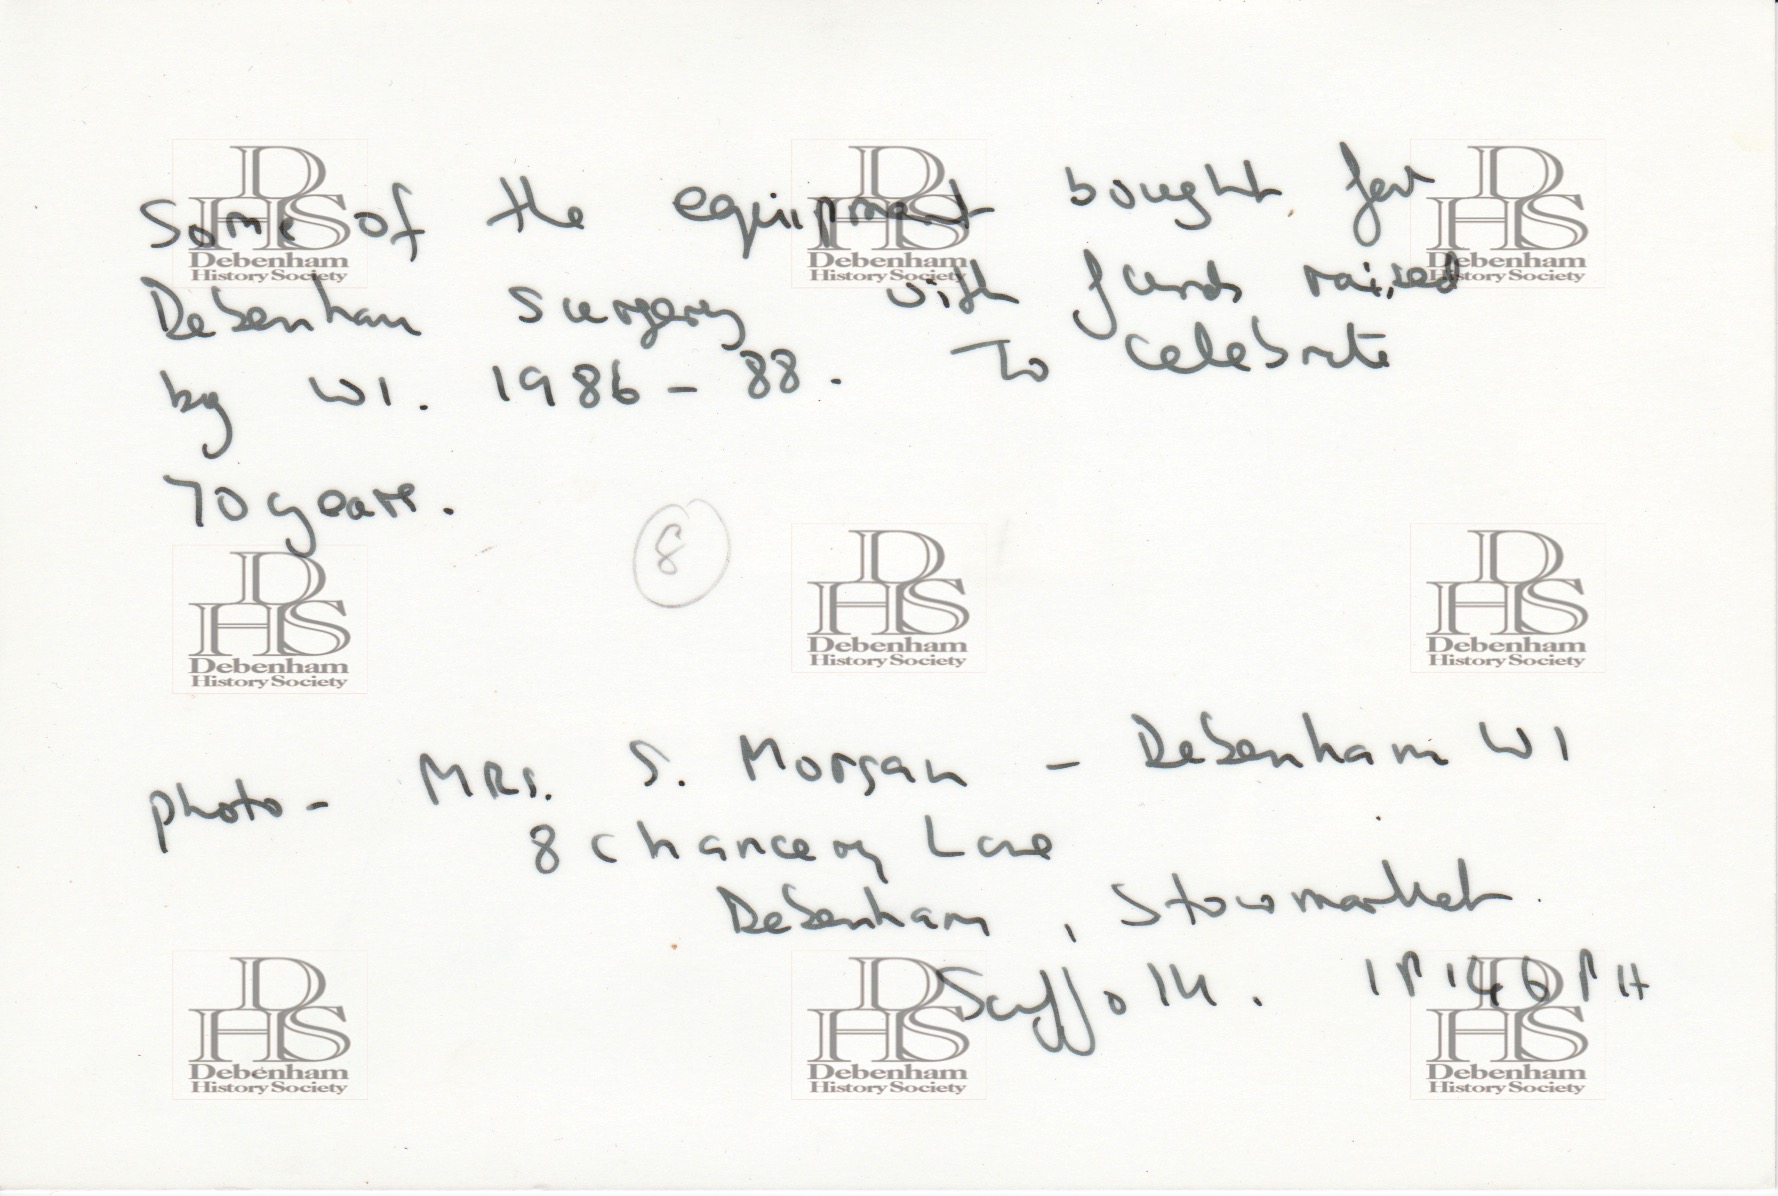 Some of the equipment bought for
Debenham Surgery with funds raised
by WI. 1986-88. To celebrate
70 years.
8
photo - MRS. S. Morgan - Debenham WI
8 Chancery Lane
Debenham, Stowmarket.
Suffolk. IP14 6PH
DHS
Debenham
History Society
DHS
Debenham
History Society
DHS
Debenham
History Society
DHS
Debenham
History Society
DHS
Debenham
History Society
DHS
Debenham
History Society
DHS
Debenham
History Society
DHS
Debenham
History Society
DHS
Debenham
History Society